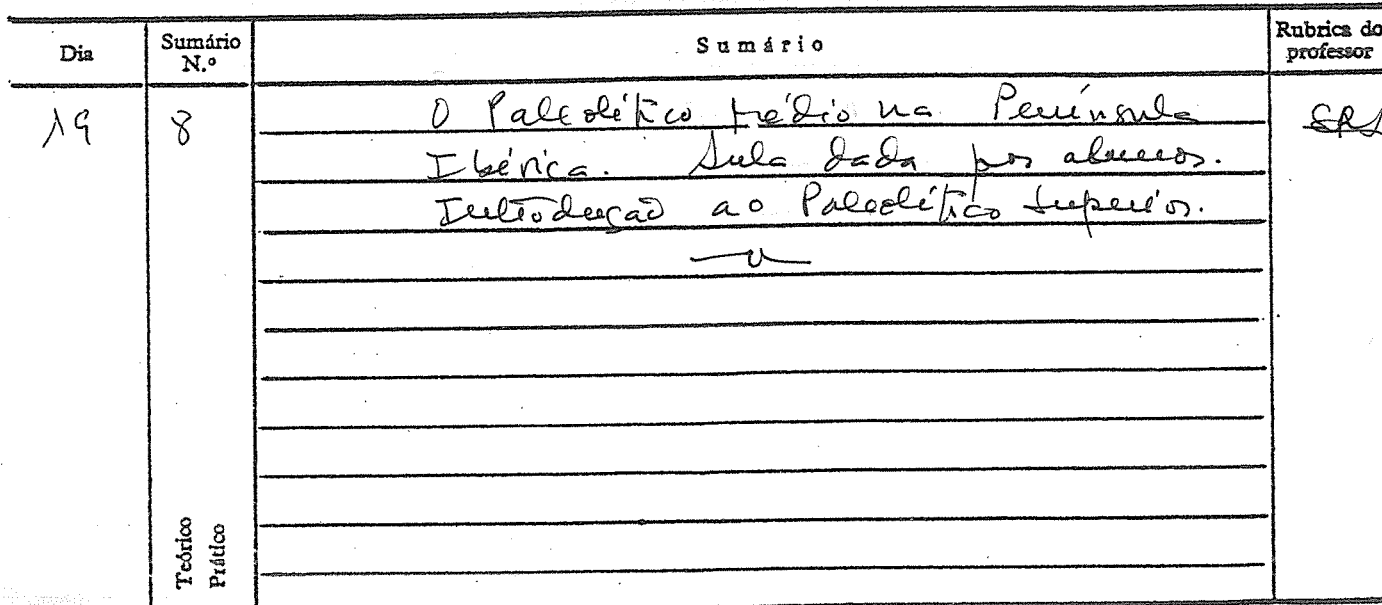 Dia Sumário N.º Sumário Rubrica do professor
19 8 O Paleolítico Médio na Península
Ibérica. Aula dada por alunos.
Introdução ao Paleolítico Superior.
Teórico
Prático